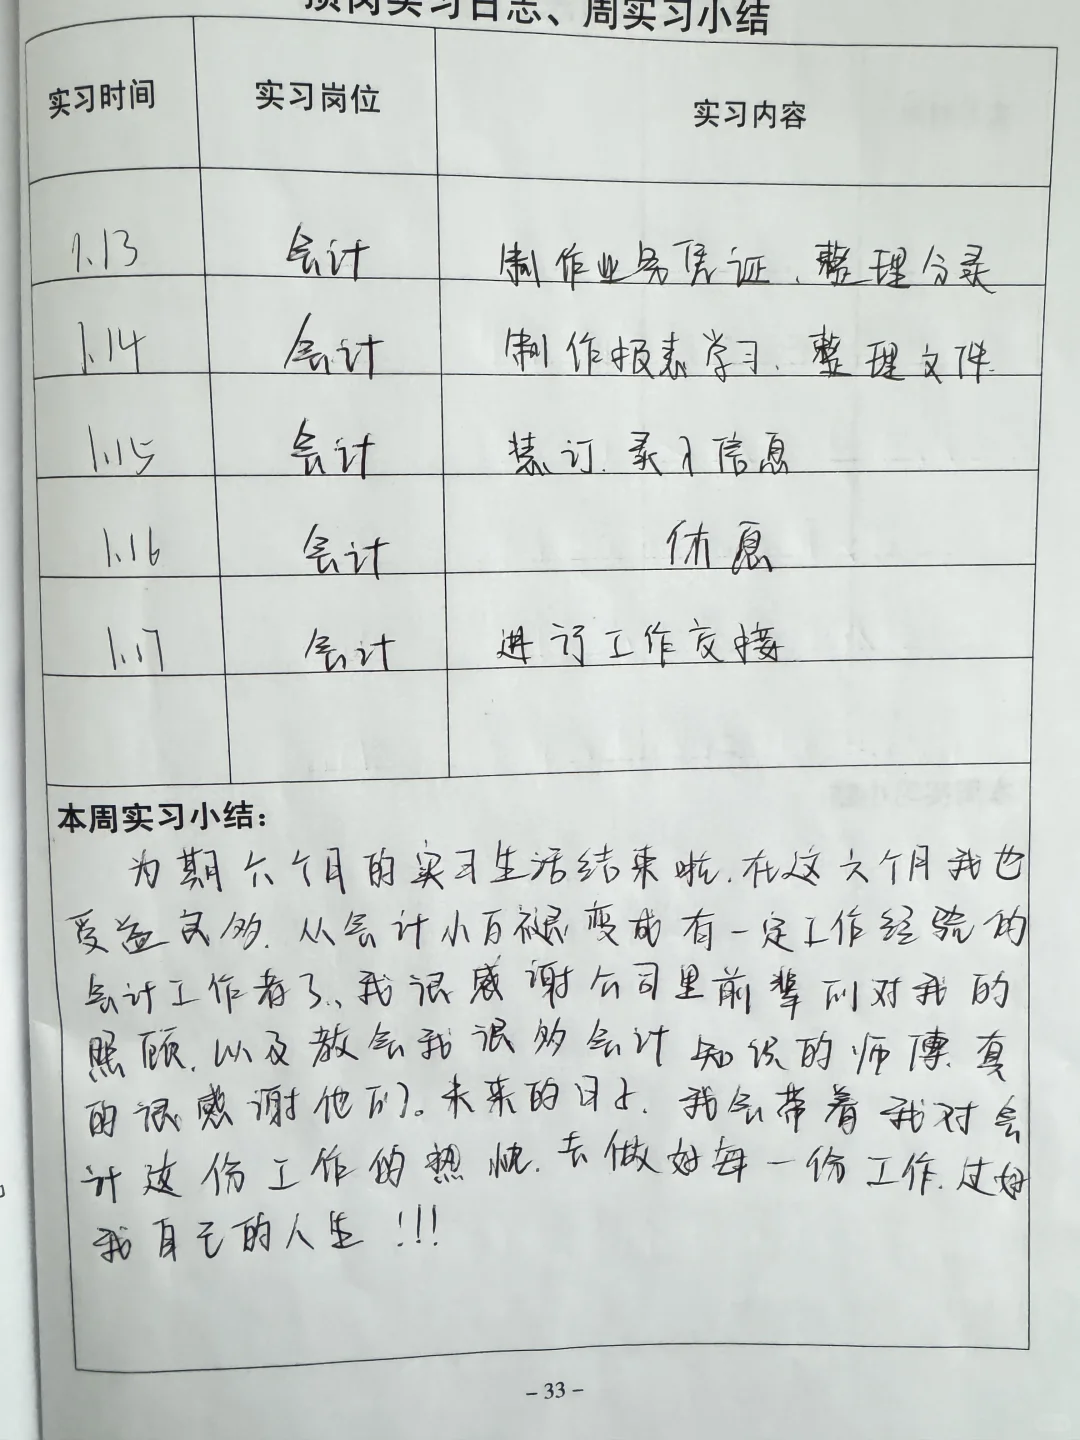 顶岗实习日志、周实习小结
实习时间 实习岗位 实习内容
1.13 会计 制作业务凭证、整理分录
1.14 会计 制作报表学习、整理文件
1.15 会计 装订、录入信息
1.16 会计 休息
1.17 会计 进行工作交接
本周实习小结：
为期六个月的实习生活结束啦，在这六个月我也
受益良多，从会计小白褪变成有一定工作经验的
会计工作者了、我很感谢公司里前辈们对我的
照顾，以及教会我很多会计知识的师傅，真
的很感谢他们。未来的日子，我会带着我对会
计这份工作的热忱，去做好每一份工作，过好
我自己的人生！！！
- 33 -